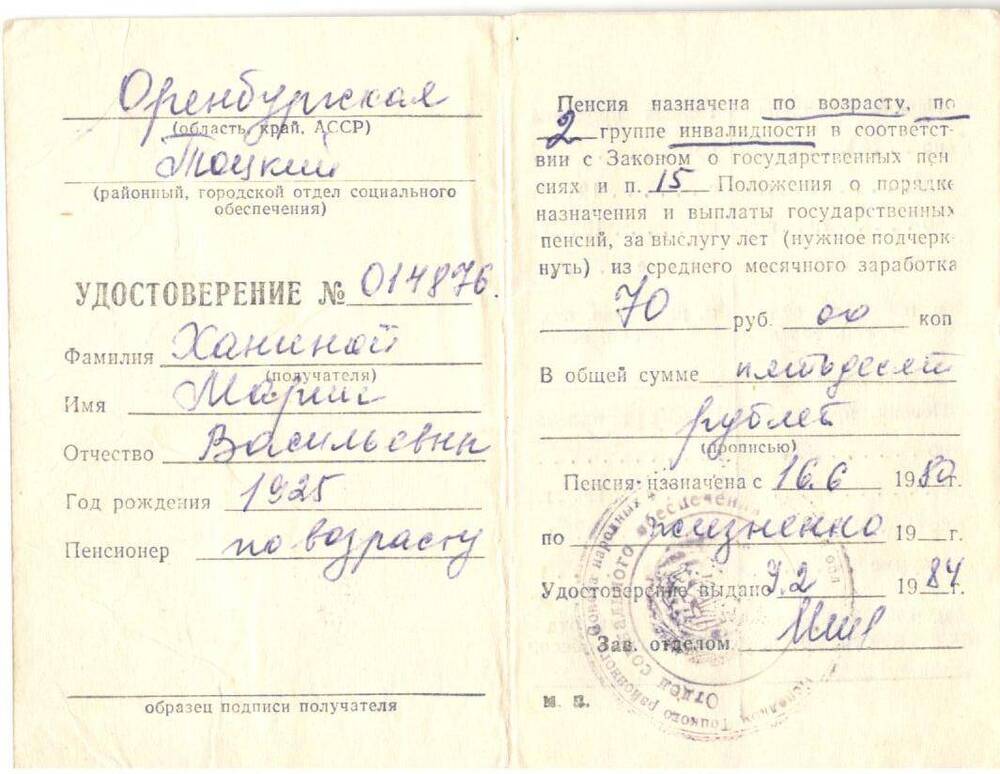 Оренбургская
(область, край, АССР)
Тоцкий
(районный, городской отдел социального
обеспечения)
УДОСТОВЕРЕНИЕ № 014876.
Фамилия Ханиной
(получателя)
Имя Марии
Отчество Васильевны
Год рождения 1925
Пенсионер по возрасту
образец подписи получателя
Пенсия назначена по возрасту, по
2 группе инвалидности в соответст-
вии с Законом о государственных пен
сиях и п. 15 Положения о порядке
назначения и выплаты государственных
пенсий, за выслугу лет (нужное подчерк-
нуть) из среднего месячного заработка
70 руб. 00 коп
В общей сумме пятьдесят
рублей
(прописью)
Пенсия назначена с 16.6 1980г.
по жизненно 19 г.
Удостоверение выдано 9.2 1984г.
Зав. отделом
М. П.
Отдел социального обеспечения
Тоцкого районного Совета народных